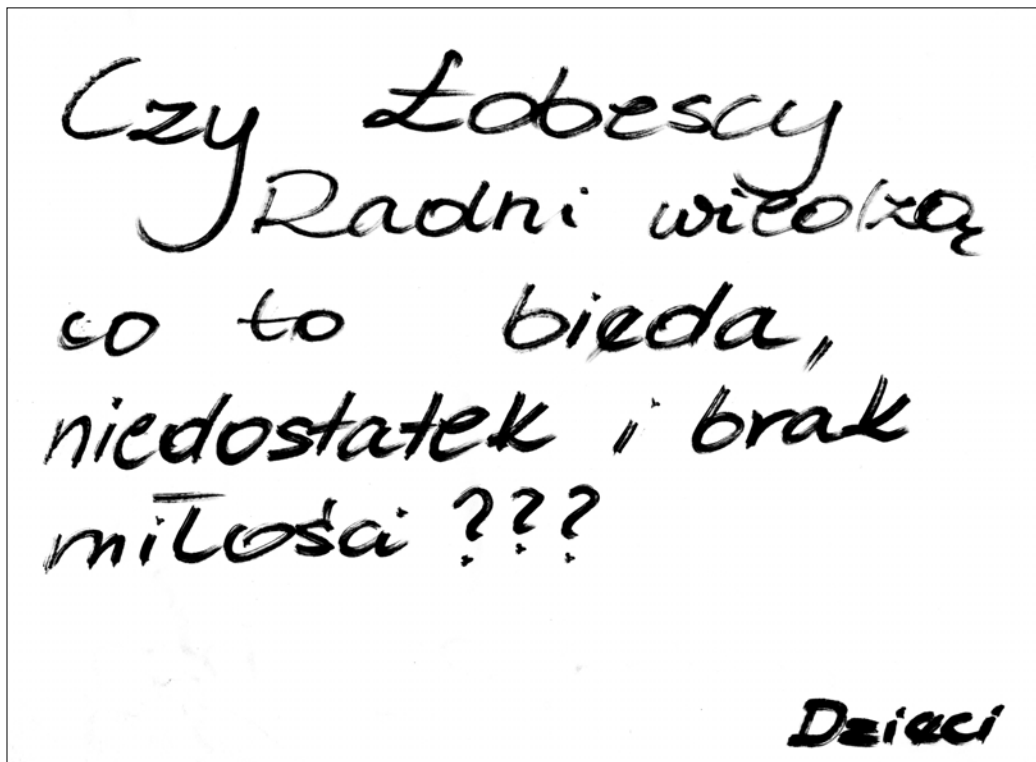 Czy Łobescy
Radni wiedzą
co to bieda,
niedostatek i brak
miłości ???
Dzieci